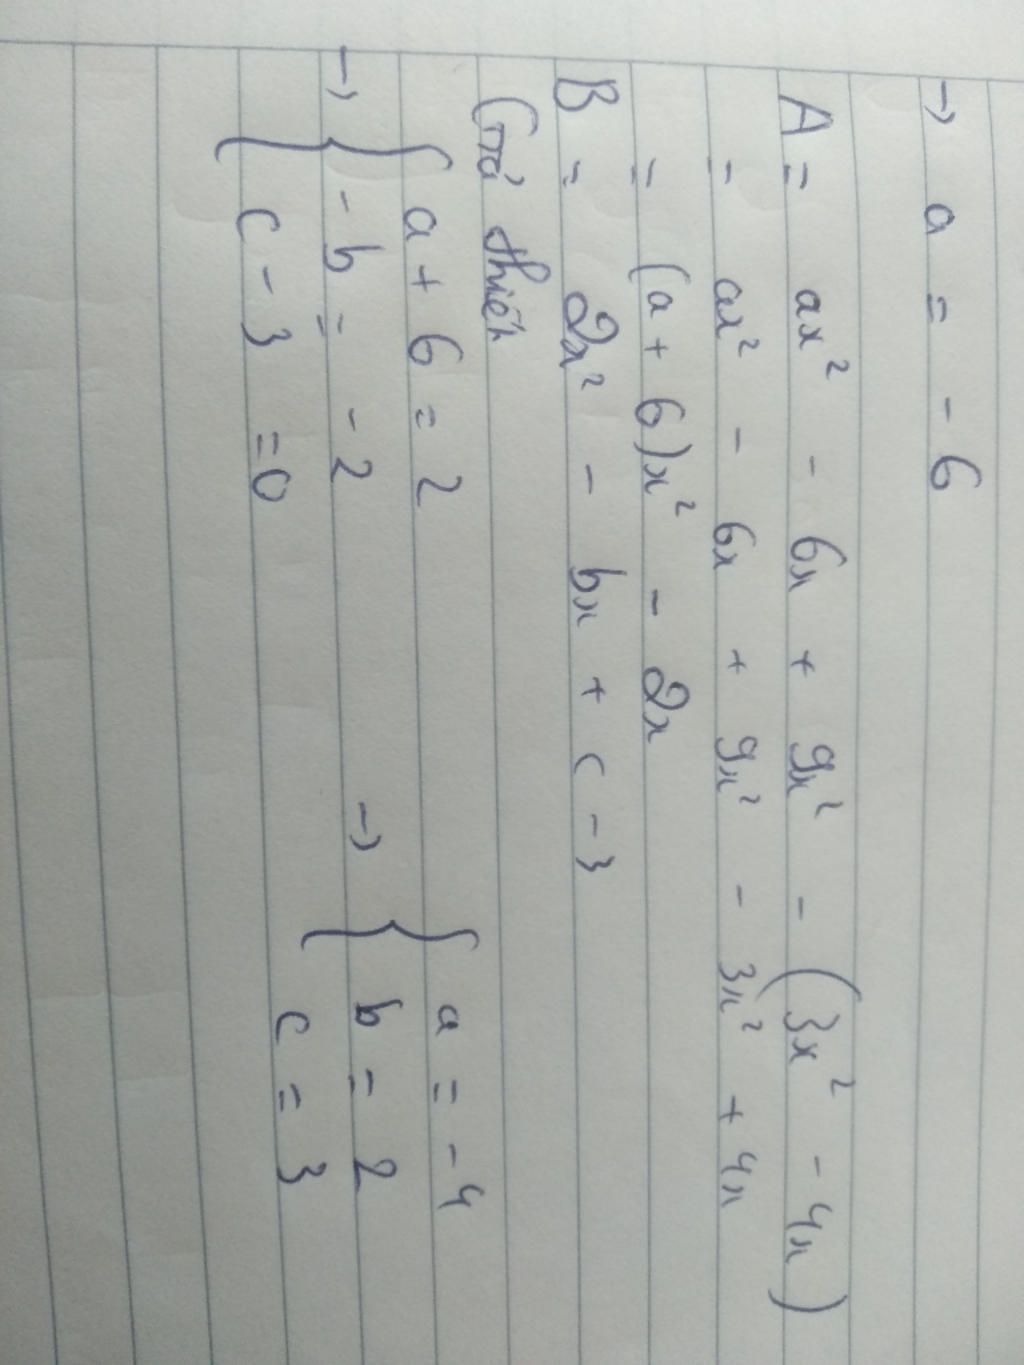 → a = - 6
A = ax² - 6x + 9x² - (3x² - 4x)
= ax² - 6x + 9x² - 3x² + 4x
= (a + 6)x² - 2x
B = 2x² - bx + c - 3
Giả thiết
→ { a + 6 = 2
- b = - 2
c - 3 = 0
→ { a = - 4
b = 2
c = 3